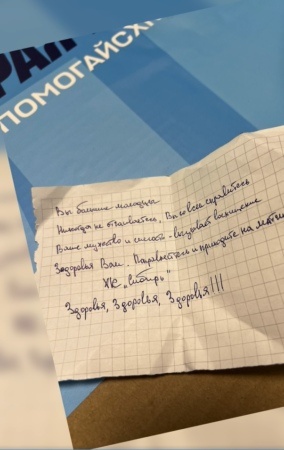 РАЛ
ПОМОГАЙСХ
Вы большие молодцы
Никогда не отчаивайтесь, Вы со всем справитесь
Ваше мужество и смелость - вызывает восхищение
Здоровья Вам. Поправляйтесь и приходите на матчи
ХК "Сибирь"
Здоровья, Здоровья, Здоровья!!!